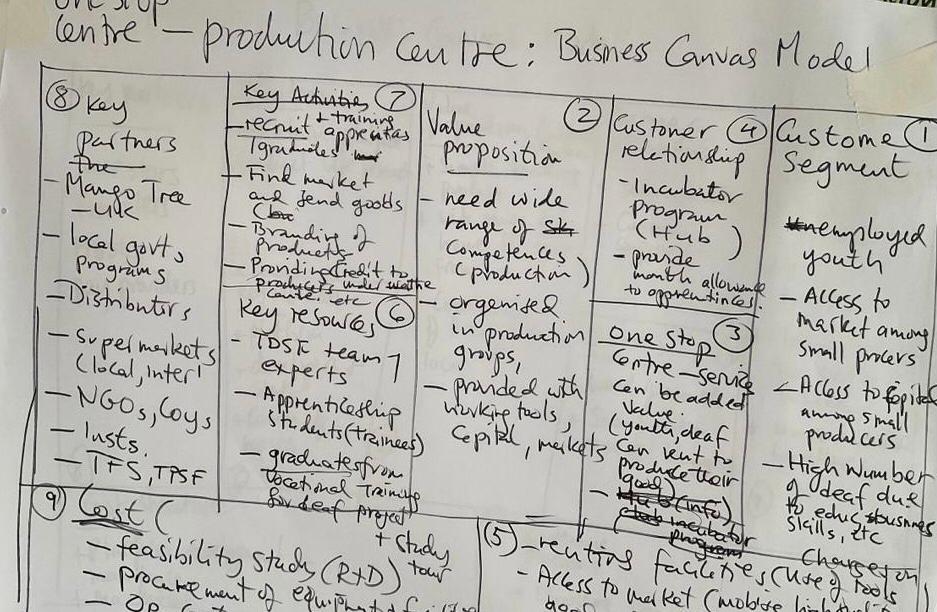 one stop
Centre - production Centre: Business Canvas Model
⑧ Key
partners
the
- Mango Tree
- UK
- local govt,
programs
- Distributors
- supermarkets
(local, inter)
- NGOs, Coys
- Insts.
- TFS, TPSF
Key Activities ⑦
+ training
- recruit apprentices
/graduates
- Find market
and send goods
- Branding of
products
- Providing credit to
producers under
center etc
Key resources ⑥
- TDSF team
experts
- Apprenticeship
students (trainees)
- graduates from
vocational Training
for deaf project
Value ②
proposition
- need wide
range of
Competences
(production)
- organised
in production
groups,
- provided with
working tools,
Capital, markets
Customer ④
relationship
- Incubator
program
(Hub)
- provide
month allowance
to apprentinces
One Stop ③
Centre - service
can be added
value.
(youth, deaf
can rent to
produce their
good)
- Hub (info)
incubator
program
Custome ①
Segment
unemployed
youth
- Access to
market among
small procers
- Access to Capital
among small
producers
- High number
of deaf due
to educ, business
skills, etc
⑨ Cost (
+ study
tour
- feasibility study (R&D)
- procurement of equipment
- Op
Charges on
⑤ - renting facilities (use of tools
- Access to market (mobile